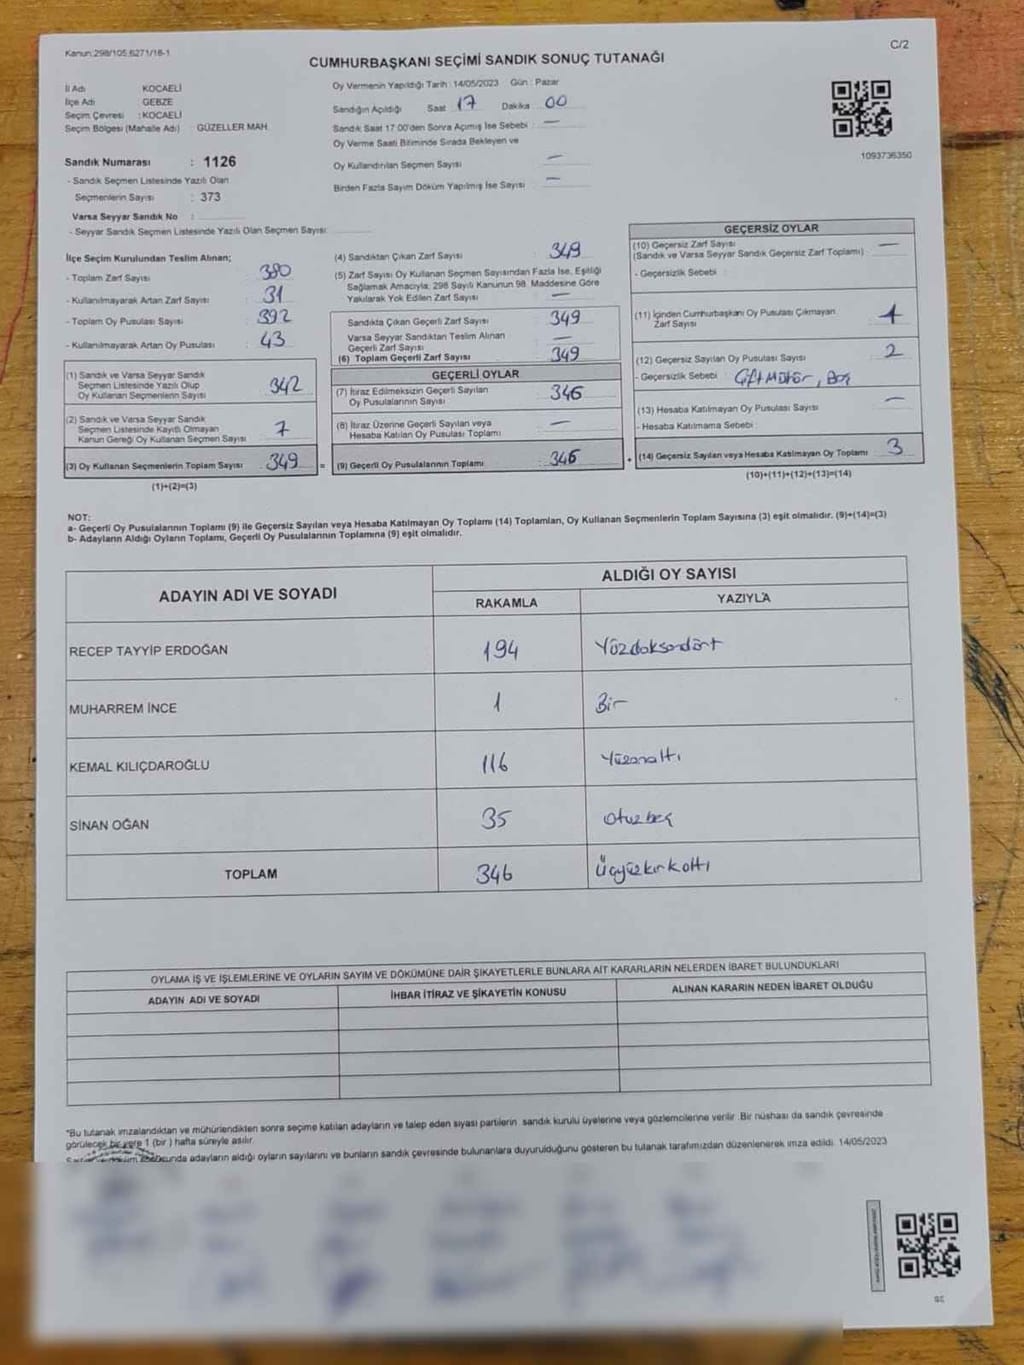 Kanun:298/105.6271/16-1
C/2
CUMHURBAŞKANI SEÇİMİ SANDIK SONUÇ TUTANAĞI
İl Adı KOCAELİ
İlçe Adı GEBZE
Seçim Çevresi : KOCAELİ
Seçim Bölgesi (Mahalle Adı) : GÜZELLER MAH.
Sandık Numarası : 1126
- Sandık Seçmen Listesinde Yazılı Olan
Seçmenlerin Sayısı : 373
Varsa Seyyar Sandık No :
- Seyyar Sandık Seçmen Listesinde Yazılı Olan Seçmen Sayısı:
Oy Vermenin Yapıldığı Tarih : 14/05/2023 Gün : Pazar
Sandığın Açıldığı Saat 17 Dakika 00
Sandık Saat 17:00'den Sonra Açılmış İse Sebebi : —
Oy Verme Saati Bitiminde Sırada Bekleyen ve
Oy Kullandırılan Seçmen Sayısı —
Birden Fazla Sayım Döküm Yapılmış İse Sayısı —
1093736350
İlçe Seçim Kurulundan Teslim Alınan;
- Toplam Zarf Sayısı : 380
- Kullanılmayarak Artan Zarf Sayısı : 31
- Toplam Oy Pusulası Sayısı : 392
- Kullanılmayarak Artan Oy Pusulası : 43
(1) Sandık ve Varsa Seyyar Sandık
Seçmen Listesinde Yazılı Olup
Oy Kullanan Seçmenlerin Sayısı : 342
(2) Sandık ve Varsa Seyyar Sandık
Seçmen Listesinde Kayıtlı Olmayan
Kanun Gereği Oy Kullanan Seçmen Sayısı : 7
(3) Oy Kullanan Seçmenlerin Toplam Sayısı : 349 =
(1)+(2)=(3)
(4) Sandıktan Çıkan Zarf Sayısı : 349
(5) Zarf Sayısı Oy Kullanan Seçmen Sayısından Fazla İse, Eşitliği
Sağlamak Amacıyla; 298 Sayılı Kanunun 98. Maddesine Göre
Yakılarak Yok Edilen Zarf Sayısı : —
Sandıkta Çıkan Geçerli Zarf Sayısı : 349
Varsa Seyyar Sandıktan Teslim Alınan
Geçerli Zarf Sayısı : —
(6) Toplam Geçerli Zarf Sayısı : 349
GEÇERLİ OYLAR
(7) İtiraz Edilmeksizin Geçerli Sayılan
Oy Pusulalarının Sayısı : 346
(8) İtiraz Üzerine Geçerli Sayılan veya
Hesaba Katılan Oy Pusulası Toplamı : —
(9) Geçerli Oy Pusulalarının Toplamı : 346 +
GEÇERSİZ OYLAR
(10) Geçersiz Zarf Sayısı
(Sandık ve Varsa Seyyar Sandık Geçersiz Zarf Toplamı) : —
- Geçersizlik Sebebi :
(11) İçinden Cumhurbaşkanı Oy Pusulası Çıkmayan
Zarf Sayısı : 1
(12) Geçersiz Sayılan Oy Pusulası Sayısı : 2
- Geçersizlik Sebebi : Çift Mühür, Boş
(13) Hesaba Katılmayan Oy Pusulası Sayısı : —
- Hesaba Katılmama Sebebi :
(14) Geçersiz Sayılan veya Hesaba Katılmayan Oy Toplamı : 3
(10)+(11)+(12)+(13)=(14)
NOT:
a- Geçerli Oy Pusulalarının Toplamı (9) ile Geçersiz Sayılan veya Hesaba Katılmayan Oy Toplamı (14) Toplamları, Oy Kullanan Seçmenlerin Toplam Sayısına (3) eşit olmalıdır. (9)+(14)=(3)
b- Adayların Aldığı Oyların Toplamı, Geçerli Oy Pusulalarının Toplamına (9) eşit olmalıdır.
ADAYIN ADI VE SOYADI ALDIĞI OY SAYISI
RAKAMLA YAZIYLA
RECEP TAYYİP ERDOĞAN 194 Yüzdoksandört
MUHARREM İNCE 1 Bir
KEMAL KILIÇDAROĞLU 116 Yüzonaltı
SİNAN OĞAN 35 Otuzbeş
TOPLAM 346 Üçyüzkırkaltı
OYLAMA İŞ VE İŞLEMLERİNE VE OYLARIN SAYIM VE DÖKÜMÜNE DAİR ŞİKAYETLERLE BUNLARA AİT KARARLARIN NELERDEN İBARET BULUNDUKLARI
ADAYIN ADI VE SOYADI İHBAR İTİRAZ VE ŞİKAYETİN KONUSU ALINAN KARARIN NEDEN İBARET OLDUĞU
"Bu tutanak imzalandıktan ve mühürlendikten sonra seçime katılan adayların ve talep eden siyasi partilerin sandık kurulu üyelerine veya gözlemcilerine verilir. Bir nüshası da sandık çevresinde
görülecek bir yere 1 (bir) hafta süreyle asılır.
adayların aldığı oyların sayılarını ve bunların sandık çevresinde bulunanlara duyurulduğunu gösteren bu tutanak tarafımızdan düzenlenerek imza edildi. 14/05/2023